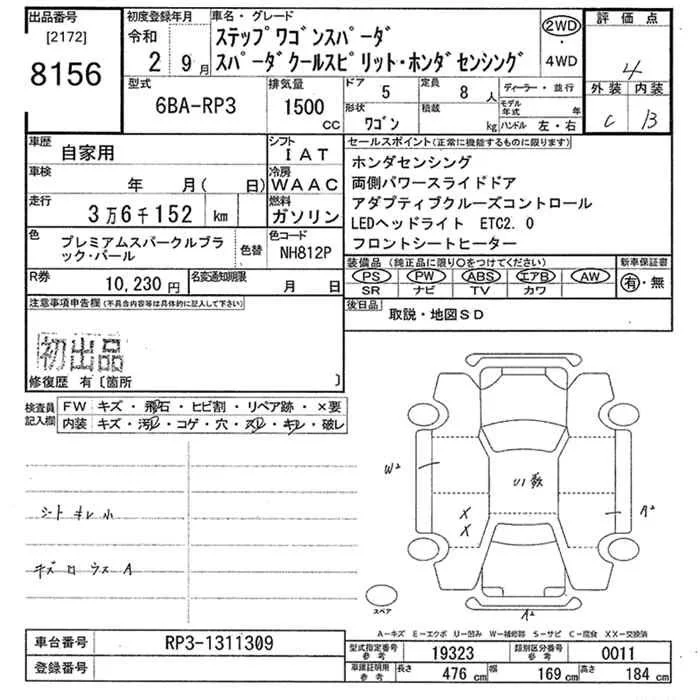 出品番号
[2172]
8156
初度登録年月
令和
2 9月
車名・グレード
ステップワゴンスパーダ
スパーダクールスピリット・ホンダセンシング
2WD
・
4WD
評価点
4
外装 内装
C B
型式
6BA-RP3
排気量
1500
CC
ドア
5
定員
8 人
形状
ワゴン
積載
kg
ディーラー・並行
モデル年式 年
ハンドル 左・右
車歴
自家用
シフト
IAT
車検
年 月( 日)
冷房
WAAC
走行
3万6千152 km
燃料
ガソリン
色
プレミアムスパークルブラ
ック・パール
色替
色コード
NH812P
R券
10,230円
名変通知期限
月 日
セールスポイント(正常に機能するものに限ります)
ホンダセンシング
両側パワースライドドア
アダプティブクルーズコントロール
LEDヘッドライト ETC2.0
フロントシートヒーター
装備品(純正品に限り○をつけてください)
PS PW ABS エアB AW
SR ナビ TV カワ
新車保証書
有・無
後日品
取説・地図SD
注意事項申告欄(不具合内容等は具体的に記入して下さい)
初出品
修復歴 有〔箇所 〕
検査員
記入欄
FW キズ・飛石・ヒビ割・リペア跡・×要
内装 キズ・汚レ・コゲ・穴・スレ・キレ・破レ
シートキレ小
キズロウスA
W2
U1数
X
X
A2
A2
スペア
A-キズ E-エクボ U-凹み W-補修跡 S-サビ C-腐食 XX-交換済
車台番号
RP3-1311309
登録番号
型式指定番号
参考
19323
類別区分番号
参考
0011
車庫証明用
参考
長さ
476 cm
幅
169 cm
高さ
184 cm